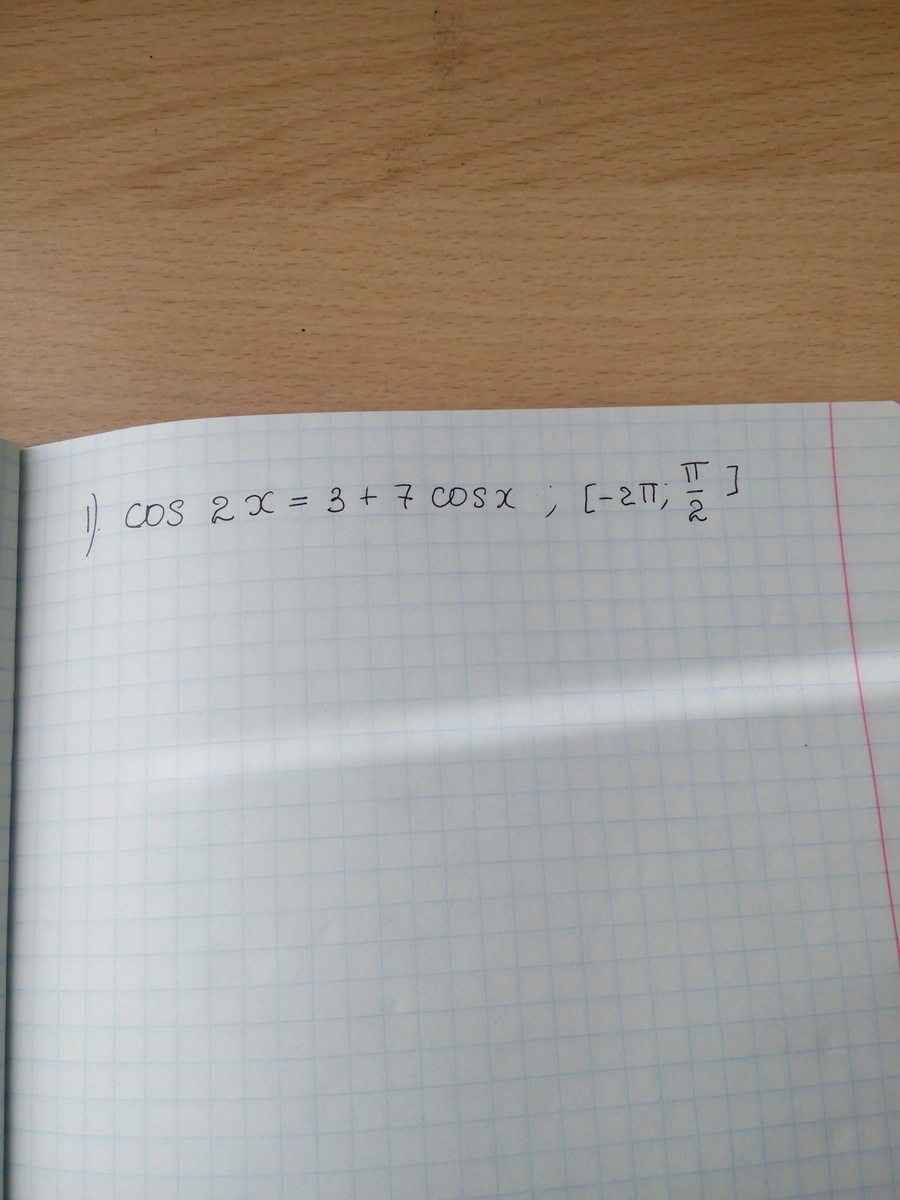 1). cos 2x = 3 + 7 cosx ; [-2π; π/2]